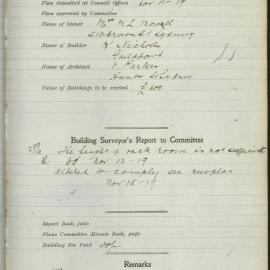 Plan deposited at Council Offices Nov 11-19
Plan approved by Committee
Name of Owner Mrs M L
Sydney
Name of Builder W. Nichols
Guildford
Name of Architect J. Parker
Hunter St Sydney
Value of Buildings to be erected £ 600
Building Surveyor's Report to Committee
The back room is not sufficient
Nov 12-19
altered to comply see
Nov 18-19
Report Book, folio
Plans Committee Minute Book, page
Building Fee Paid
Remarks